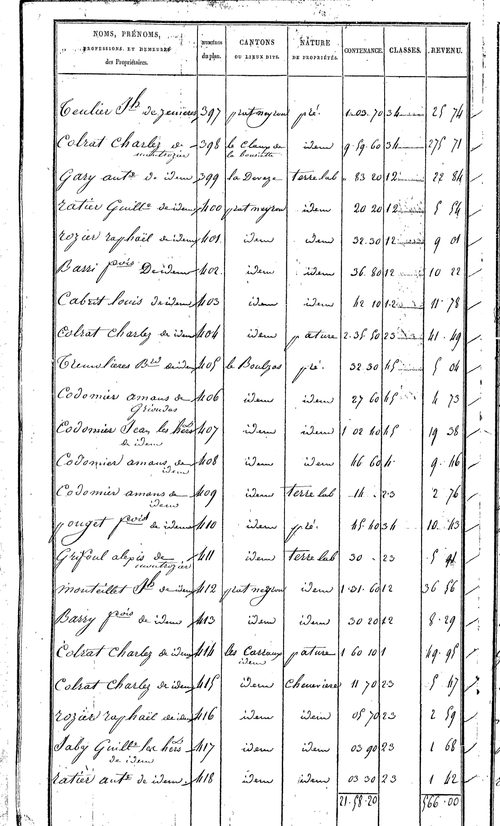 NOMS, PRÉNOMS, PROFESSIONS, ET DEMEURES des Propriétaires. | numéros du plan. | CANTONS OU LIEUX DITS. | NATURE DE PROPRIÉTÉS. | CONTENANCE. | CLASSES. | REVENU.
Teulier Jh de 397 prat meyron pré 1 03 70 34 25 74
Colrat Charles de montrozier 398 le Claux de la idem 9 59 60 34 275 71
Gary ante de idem 399 la Deveze terre lab 83 20 12 22 84
ratier Guille de idem 400 prat meyron idem 20 20 12 5 54
rozier raphaël de idem 401 idem idem 32 30 12 9 01
Barri fcois de idem 402 idem idem 36 80 12 10 22
Cabrit louis de idem 403 idem idem 42 10 12 11 78
Colrat Charles de idem 404 idem pature 2 35 50 23 41 49
de idem 405 le Boulzas pré 32 30 45 5 04
Codomier amans de Grioudas 406 idem idem 27 60 45 4 73
Codomier Jean les hers de idem 407 idem idem 1 02 40 45 19 38
Codomier amans de idem 408 idem idem 46 60 4 9 46
Codomier amans de idem 409 idem terre lab 14 23 2 76
pouget fcois de idem 410 idem pré 45 40 34 10 43
Grifoul alexis de montrozier 411 idem terre lab 30 23 5
monteillet Jh de idem 412 prat meyron idem 1 31 60 12 36 56
Barry fcois de idem 413 idem idem 30 20 12 8 29
Colrat Charles de idem 414 les Carraux idem pature 1 60 10 1 49 95
Colrat Charles de idem 415 idem Cheneviere 11 70 23 5 47
rozier raphaël de idem 416 idem idem 05 70 23 2 59
Guille les hers de idem 417 idem idem 03 90 23 1 68
ratier ante de idem 418 idem idem 03 30 23 1 42
21 58 20 566 00